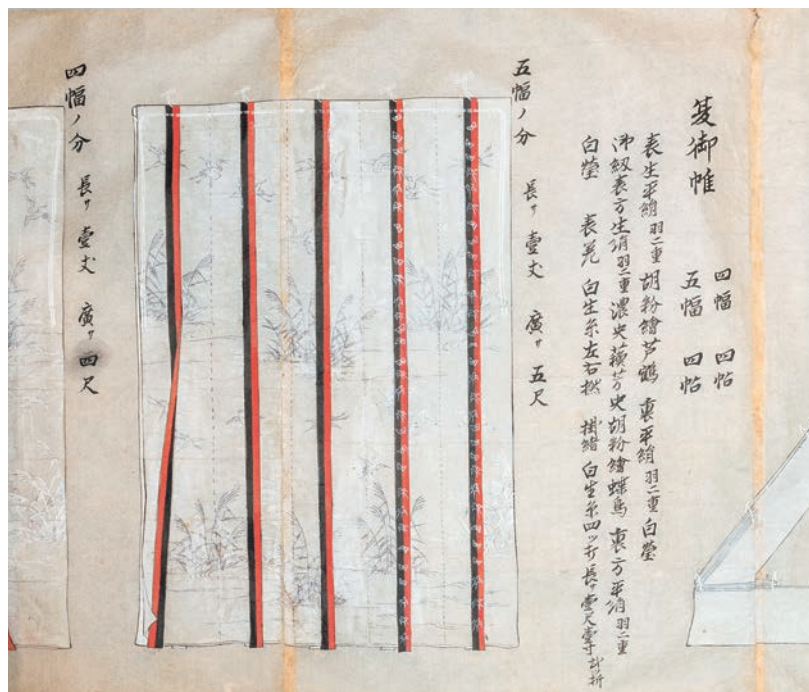 夏御帷
四幅 四帖
五幅 四帖
表生平絹羽二重 胡粉繪芦鶴 裏平絹羽二重白瑩
御紐表方生絹羽二重濃史蘓芳史胡粉繪蝶鳥 裏方平絹羽二重
白瑩 表差 白生糸左右撚 掛緒白生糸四ツ打長サ壹尺壹寸
五幅ノ分 長サ 壹丈 廣サ 五尺
四幅ノ分 長サ 壹丈 廣サ 四尺